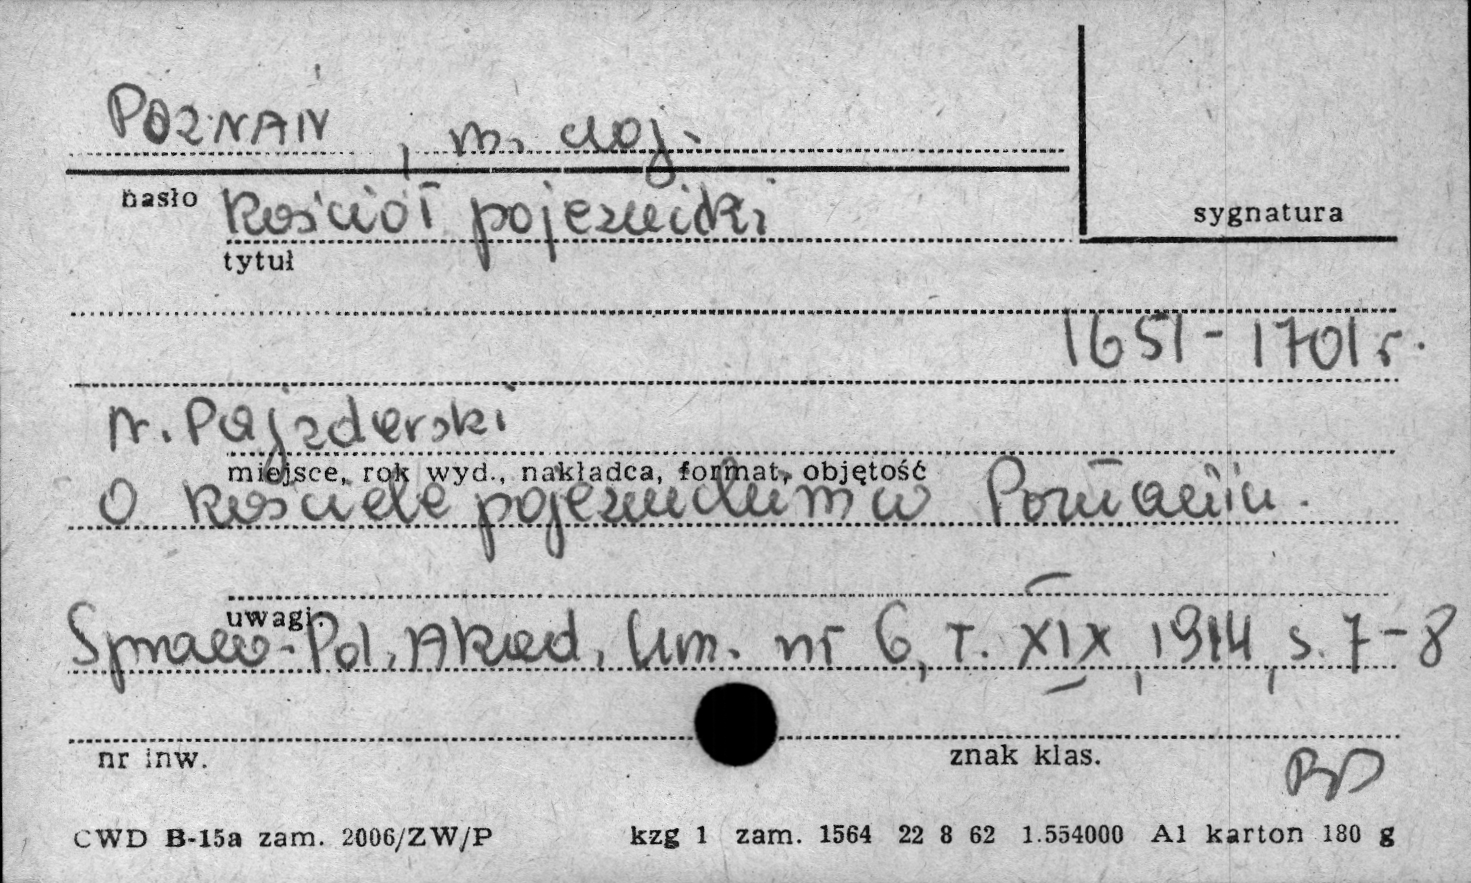 POZNAŃ, m. woj.
hasło
Kościół pojezuicki
sygnatura
tytuł
1651-1701 r.
N. Pajzderski
miejsce, rok wyd., nakładca, format, objętość
O kościele pojezuickim w Poznaniu.
uwagi:
Spraw. Pol. Akad. Um. nr 6, T. XIX, 1914, s. 7-8
nr inw.
znak klas.
CWD B-15a zam. 2006/ZW/P kzg 1 zam. 1564 22 8 62 1.554000 A1 karton 180 g